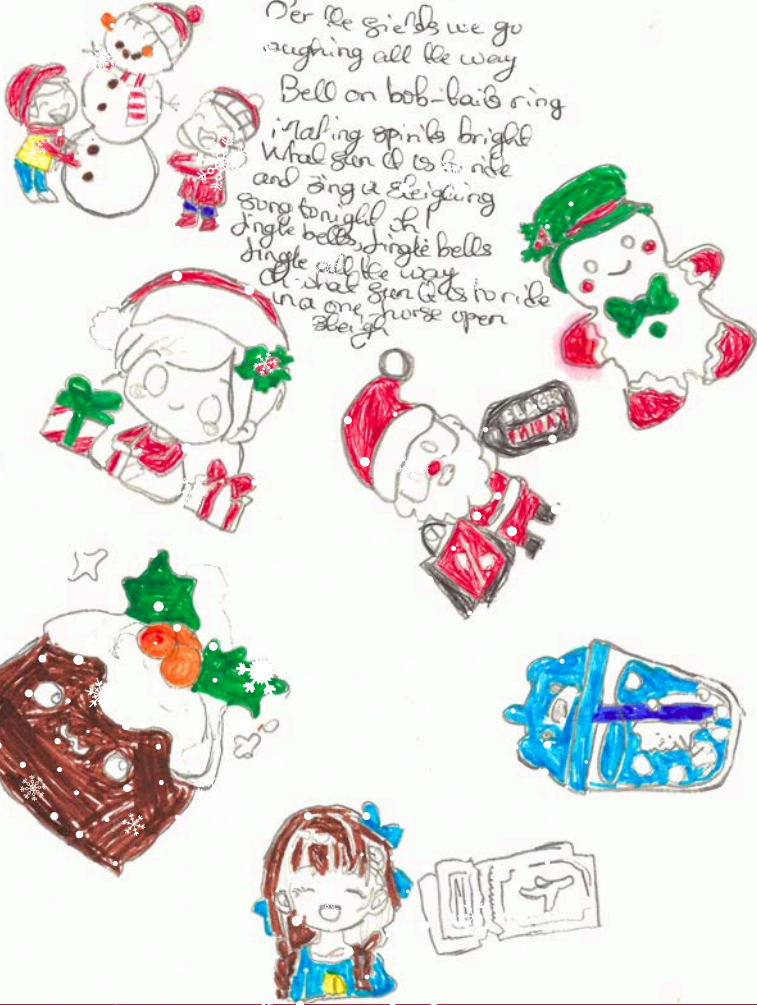 O'er the fields we go
laughing all the way
Bell on bob-tails ring
Making spirits bright
What fun it is to ride
and sing a sleighing
song tonight oh!
Jingle bells, jingle bells
Jingle all the way
Oh what fun it is to ride
in a one-horse open
sleigh
BLACK
FRIDAY